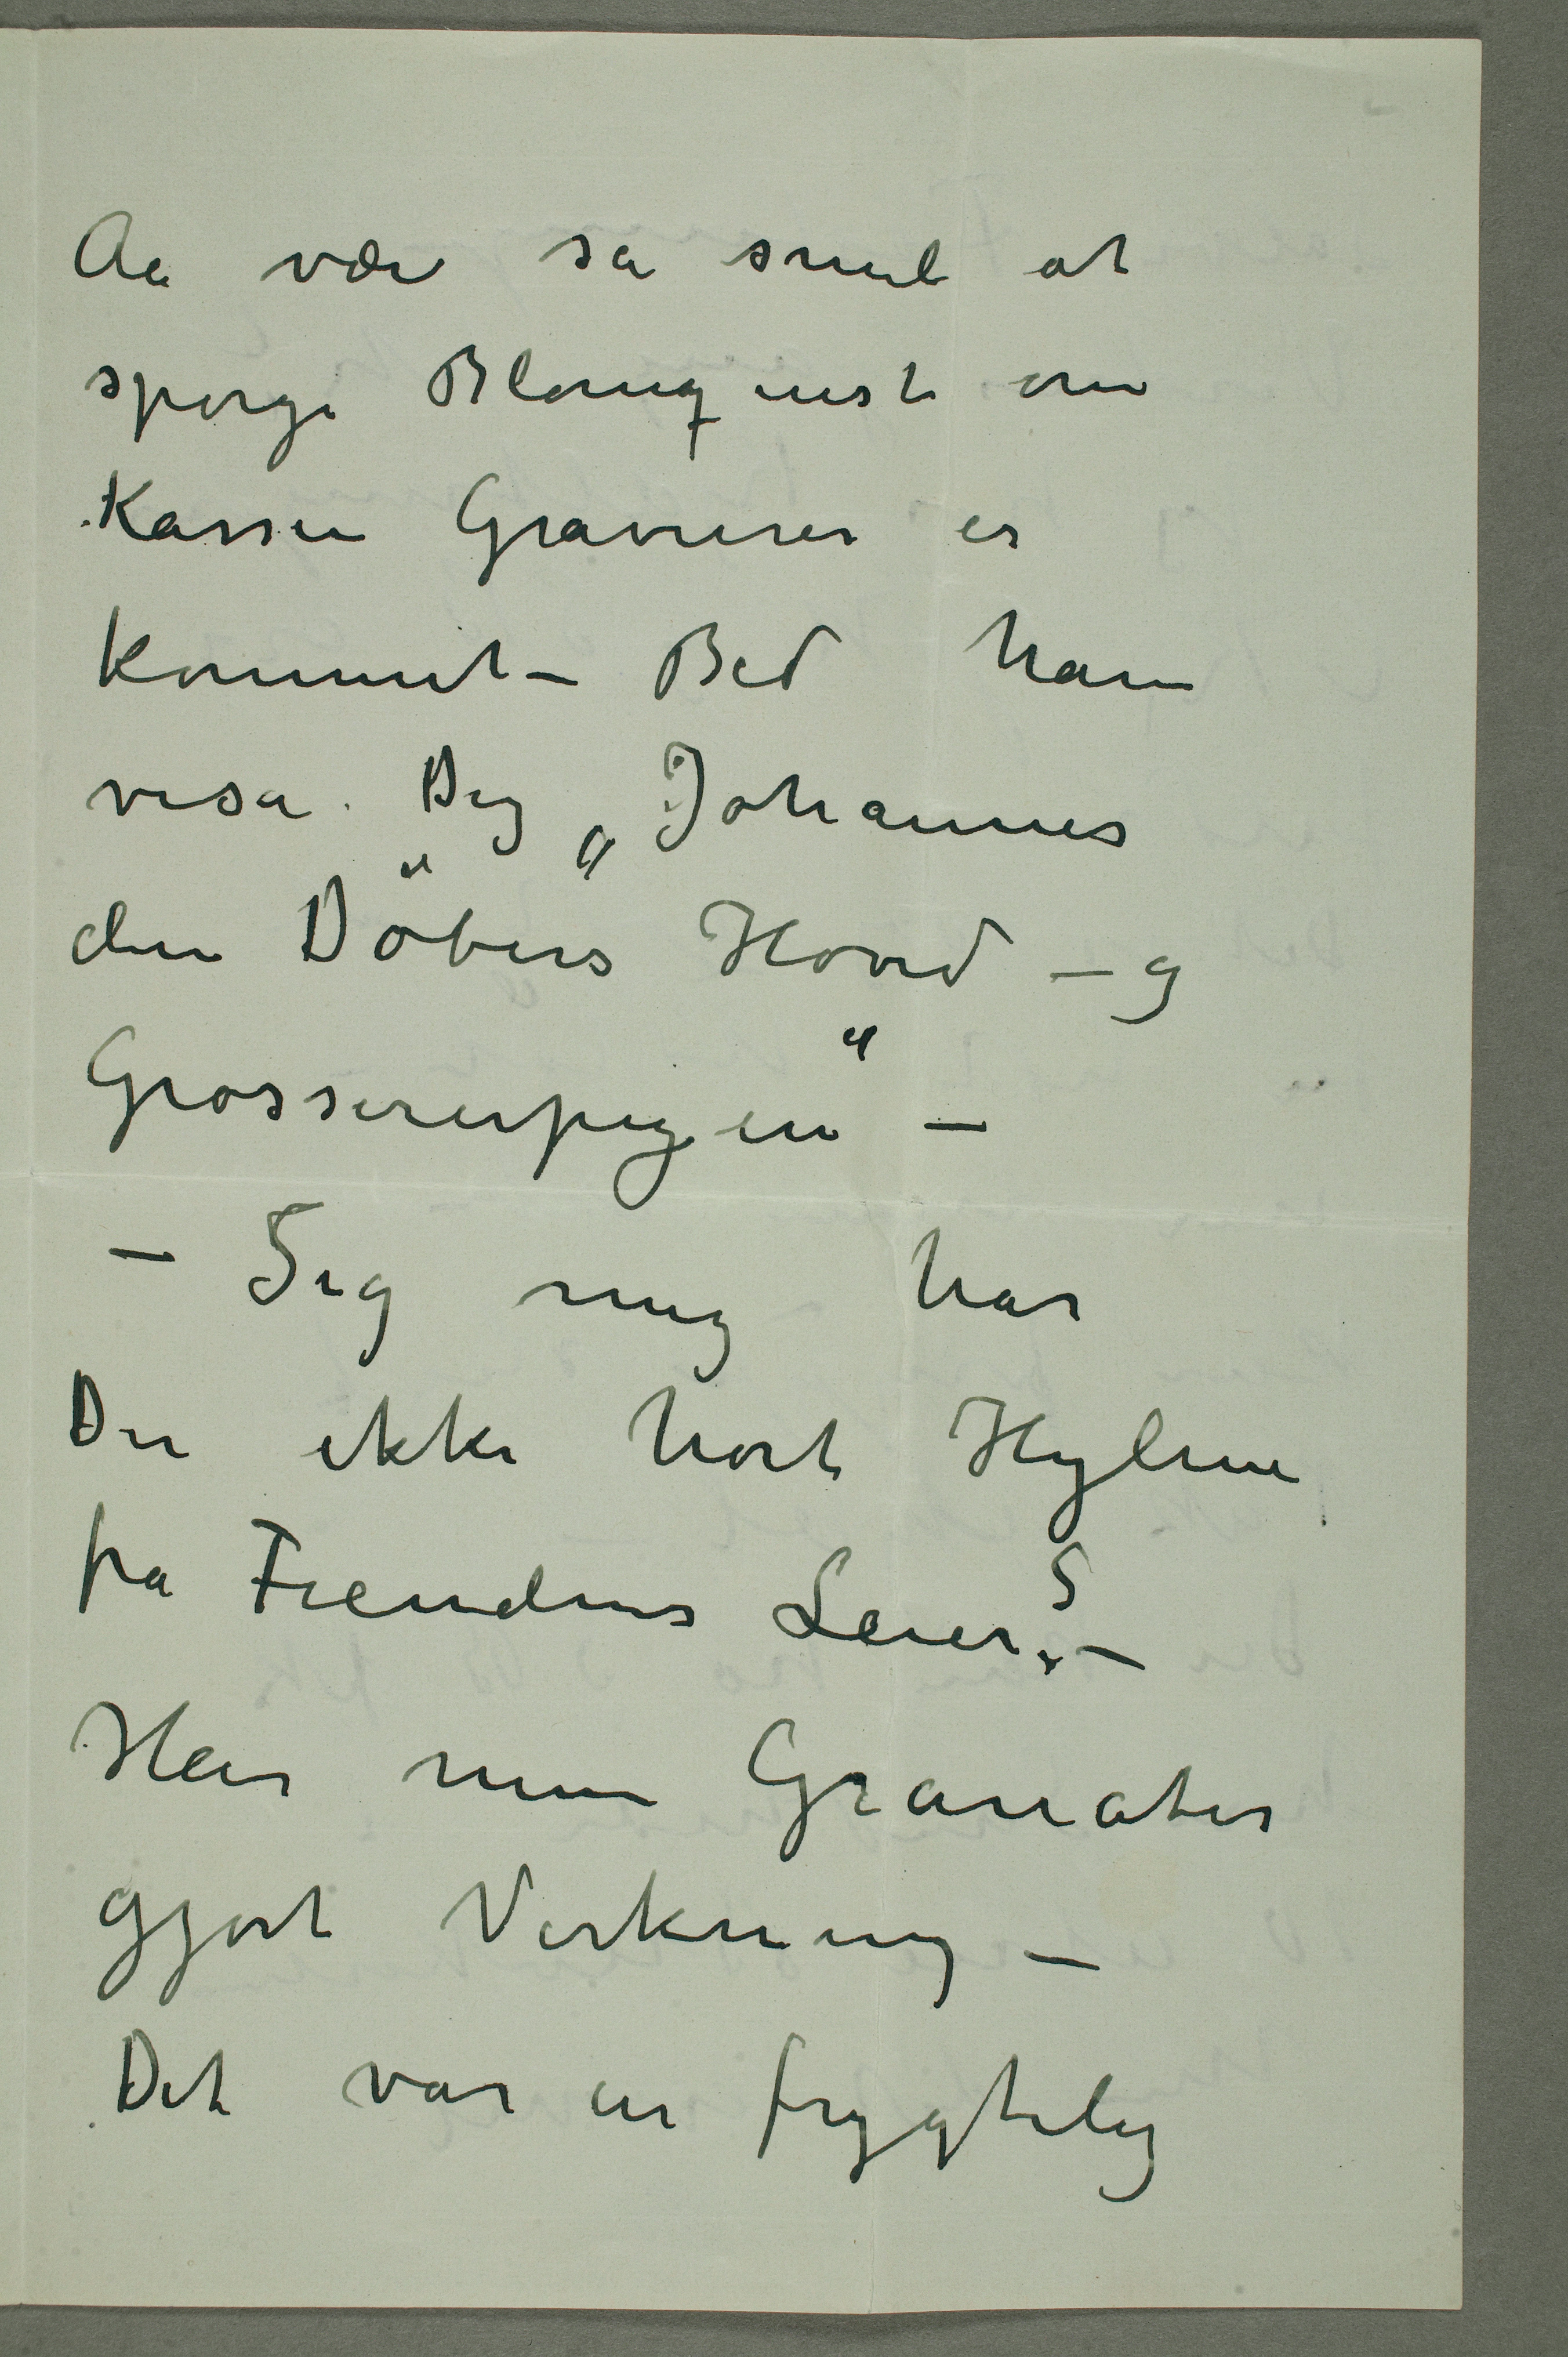 Aa vær sa snil at
spørge Blomquist om
Kassen Gravurer er
kommet – Bed ham
visa Dig „Johannes
den Döbers Hoved – g
Grossererpigen“ –
– Sig mig har
Du ikke hørt Hylene
fra Fiendens Leier? –
Har mine Granater
gjort Virkning –
Det var en frygtelig